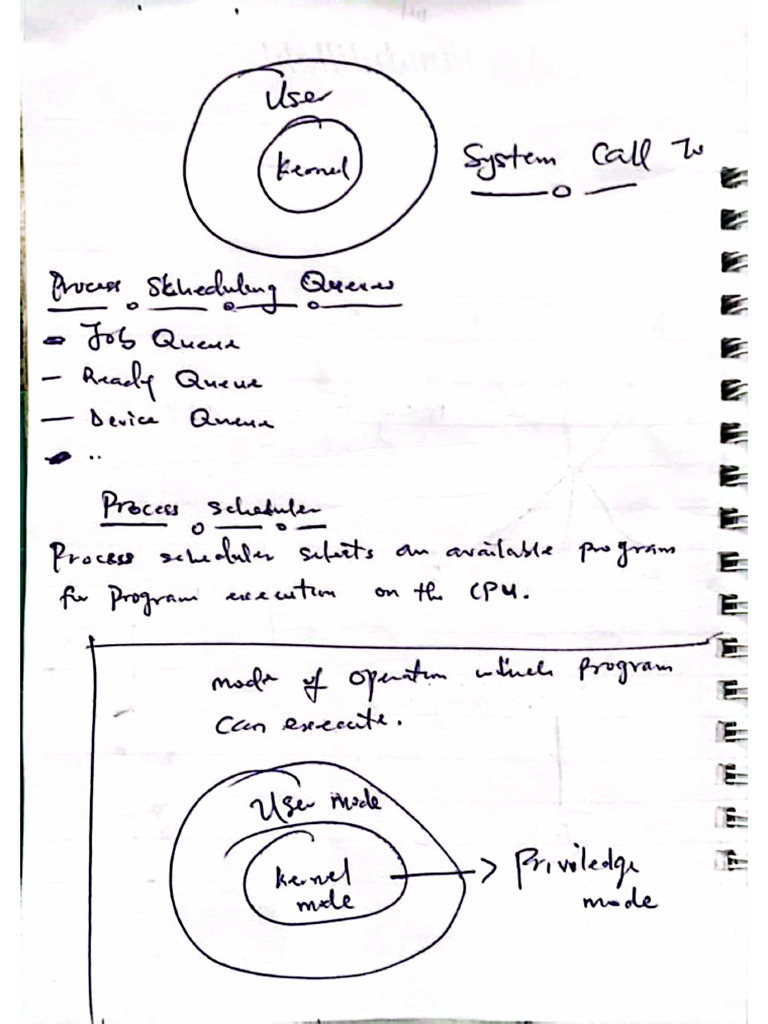 User
Kernel
System Call
Process Scheduling Queues
Job Queue
- Ready Queue
- Device Queue
Process scheduler
Process scheduler selects an available program
for program execution on the CPU.
mode of operation which program
can execute.
User mode
Kernel
mode
Priviledge
mode